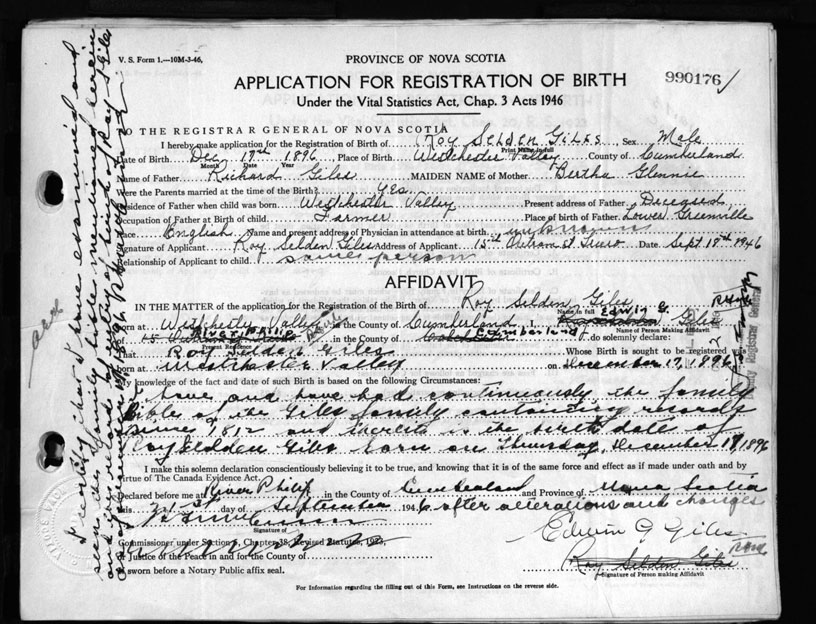 V. S. Form 1.—10M-3-46.
PROVINCE OF NOVA SCOTIA
APPLICATION FOR REGISTRATION OF BIRTH
990176
Under the Vital Statistics Act, Chap. 3 Acts 1946
TO THE REGISTRAR GENERAL OF NOVA SCOTIA
I hereby make application for the Registration of Birth of Roy Selden Giles Sex Male
Print Name in full
Date of Birth Dec 17th 1896 Place of Birth Westchester Valley County of Cumberland
Month Date Year
Name of Father Richard Giles MAIDEN NAME of Mother Bertha Glennie
Were the Parents married at the time of the Birth? Yes
Residence of Father when child was born Westchester Valley Present address of Father Deceased
Occupation of Father at Birth of child Farmer Place of birth of Father Lower Greenville
Race English Name and present address of Physician in attendance at birth unknown
Signature of Applicant Roy Selden Giles Address of Applicant 15 Outram St Truro Date Sept 17th 1946
Relationship of Applicant to child same person
AFFIDAVIT
IN THE MATTER of the application for the Registration of the Birth of Roy Selden Giles
Name in full
born at Westchester Valley in the County of Cumberland I Edwin G. Giles
Name of Person Making Affidavit
of River Philip in the County of Cumberland do solemnly declare:
Present Residence
That Roy Selden Giles Whose Birth is sought to be registered was
born at Westchester Valley on December 17, 1896
My knowledge of the fact and date of such Birth is based on the following Circumstances:
I have and have had continuously the family
Bible of the Giles family containing records
since 1812 and therein is the birth date of
Roy Seldon Giles born on Thursday, December 17, 1896
I make this solemn declaration conscientiously believing it to be true, and knowing that it is of the same force and effect as if made under oath and by
virtue of The Canada Evidence Act.
Declared before me at River Philip in the County of Cumberland and Province of Nova Scotia
this 21st day of September 1946 after alterations and changes
Signature of
Edwin G Giles
Commissioner under Section Chapter 38, Revised Statutes, 1923,
Roy Selden Giles
or Justice of the Peace in and for the County of
Signature of Person making Affidavit
If sworn before a Notary Public affix seal.
For Information regarding the filling out of this Form, see Instructions on the reverse side.
I certify that I have examined and